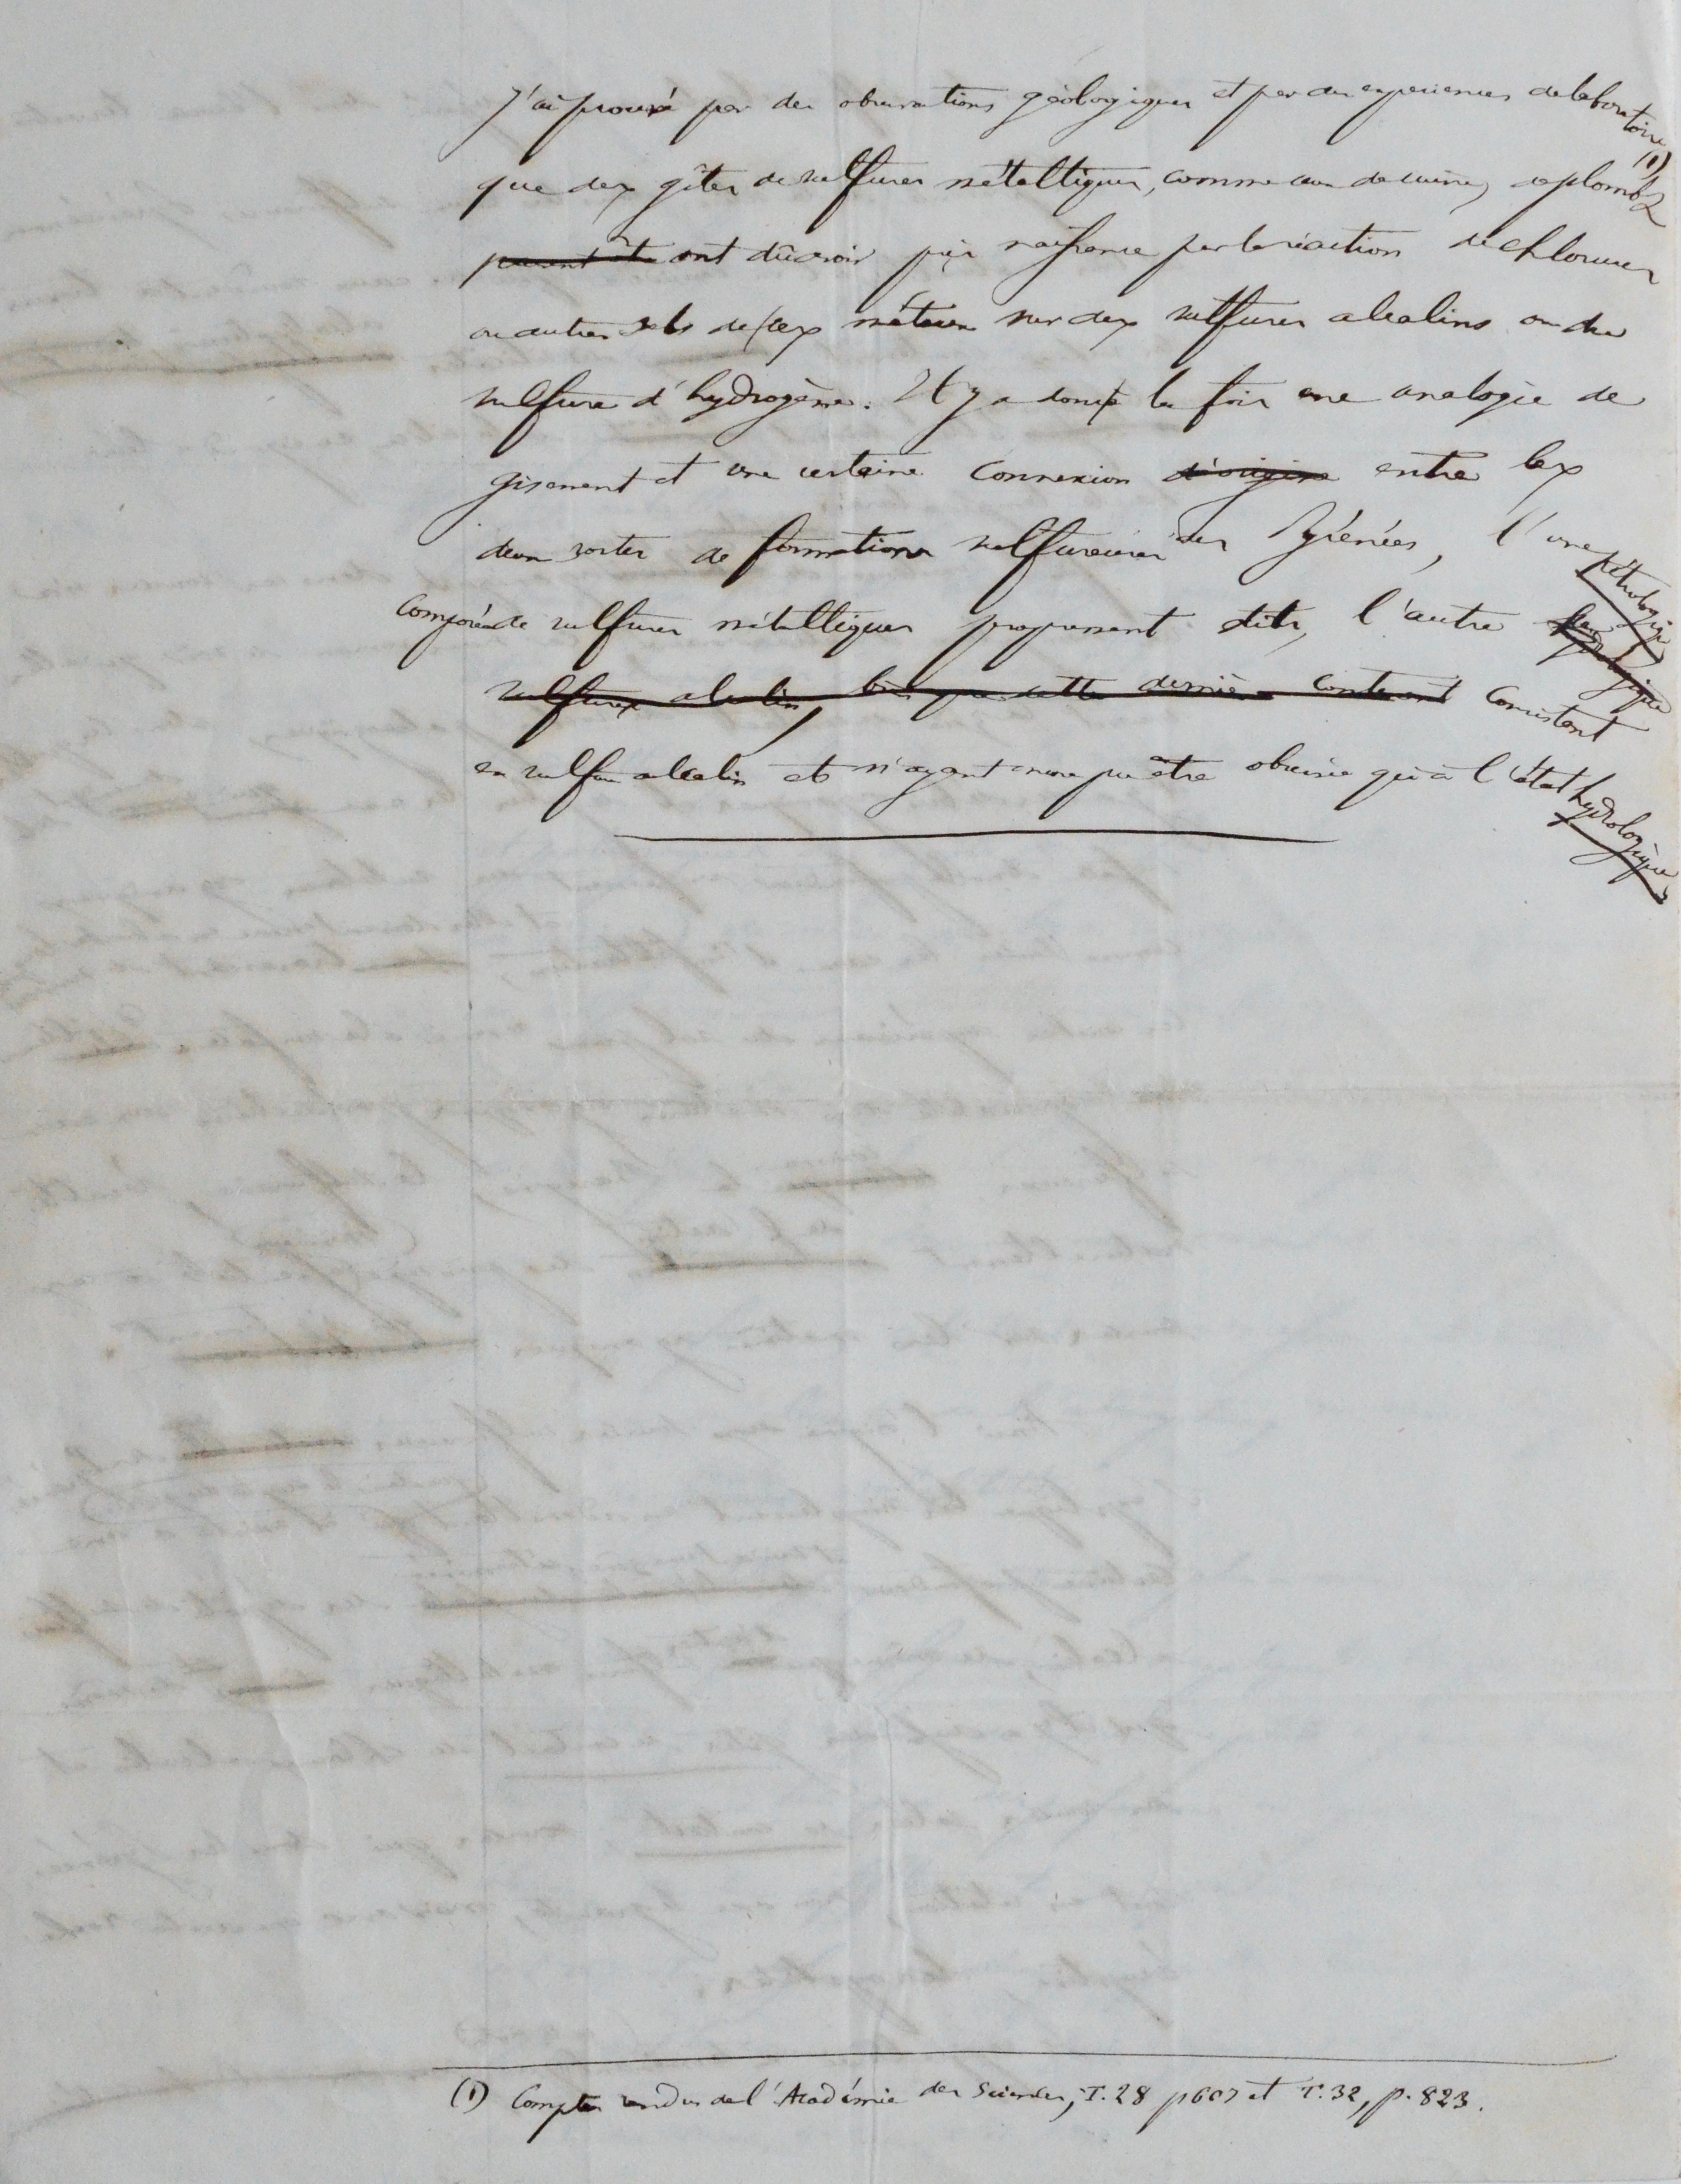 J'ai prouvé par des observations géologiques et par des experiences de laboratoire
que des gîtes de sulfures métalliques, comme ceux de cuivre, de plomb (1)
ont dû avoir pris naissance par la réaction de chlorures
ou autres sels de ces métaux sur des sulfures alcalins ou du
sulfure d'hydrogène. Il y a donc à la fois une analogie de
gisement et une certaine connexion d'origine entre les
deux sortes de formations sulfureuses des Pyrénées, l'une pétrologique
composée de sulfures métalliques proprement dits, l'autre
sulfures alcalins, bien que cette dernière contenant consistant
en sulfure alcalin et n'ayant encore pu être observée qu'à l'état hydrologique
(1) Comptes rendus de l'Académie des Sciences, T. 28 p 607 et T. 32, p. 823.